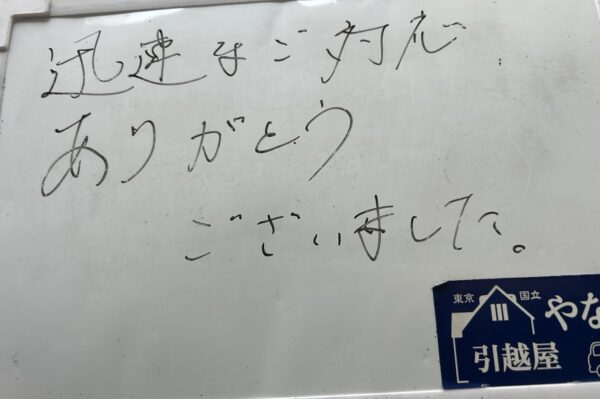 迅速なご対応
ありがとう
ございました。
東京 国立
やな
引越屋